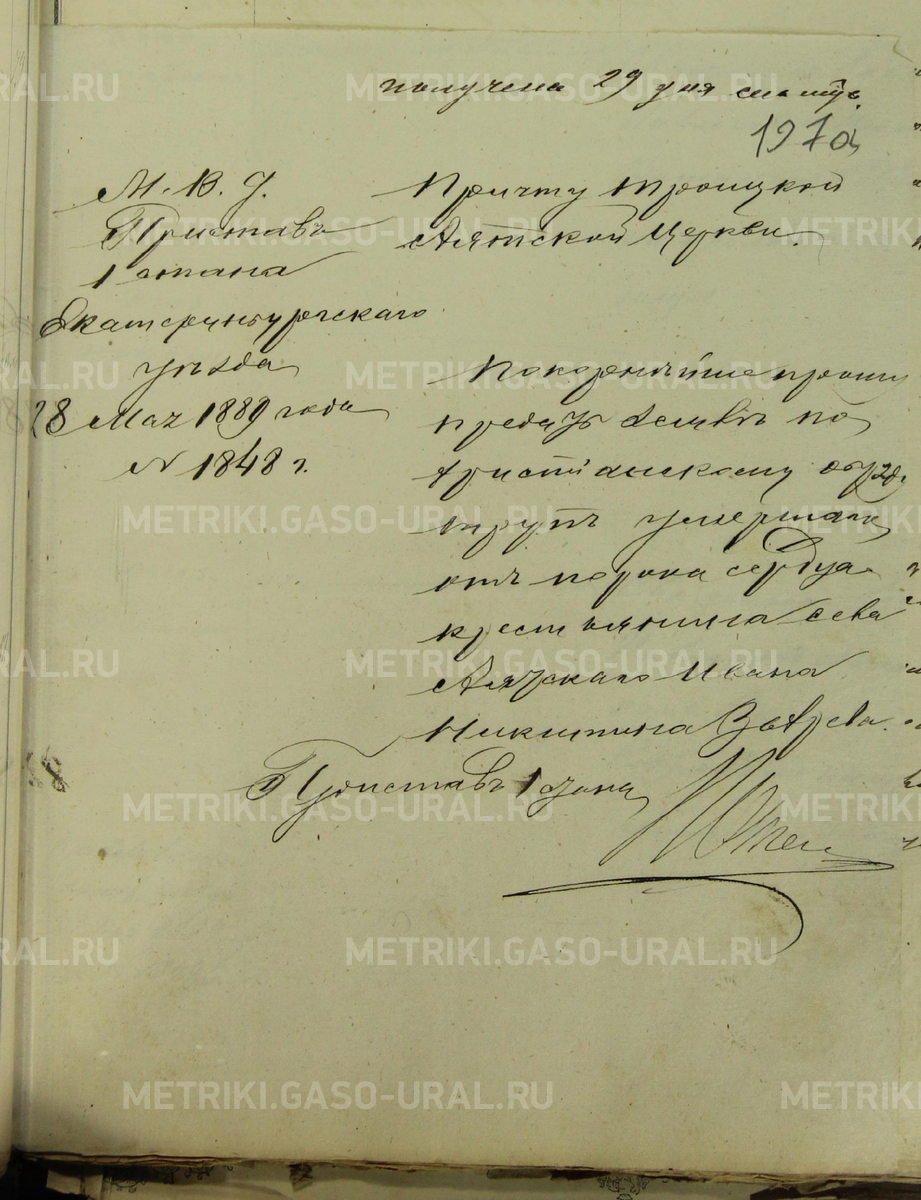 получена 29 дня
197а
М. В. Д.
Пристава
1 стана
Екатеринбургскаго
уѣзда
28 Мая 1889 года
№ 1848 г.
Причту Троицкой
Аятской Церкви.
Покорнѣйше прошу
предать землѣ по
христіанскому обряду
трупъ умершаго
отъ порока сердца
крестьянина села
Аятскаго Ивана
Никитина Звѣрева.
Приставъ 1 стана
METRIKI.GASO-URAL.RU